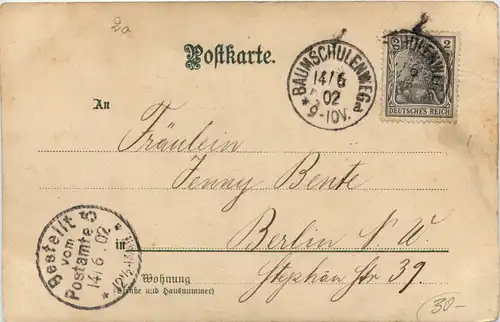 2a
Postkarte.
BAUMSCHULENWEG
14/6
02
9-10V.
2 2
DEUTSCHES REICH
An
Fräulein
Jenny Bente
in Berlin N. W.
Wohnung Stephan Str 39.
(Straße und Hausnummer)
Bestellt
vom
Postamte 5
14/6.02
30-